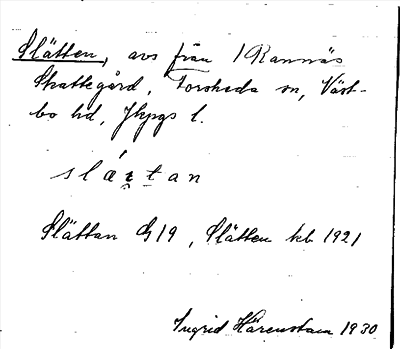 Slätten, avs från 1 Rannäs
Skattegård, Forsheda sn, Väst-
bo hd, Jkpgs l.
slä́ṯtan
Slättan G19, Slätten kb 1921
Ingrid Härenstam 1930